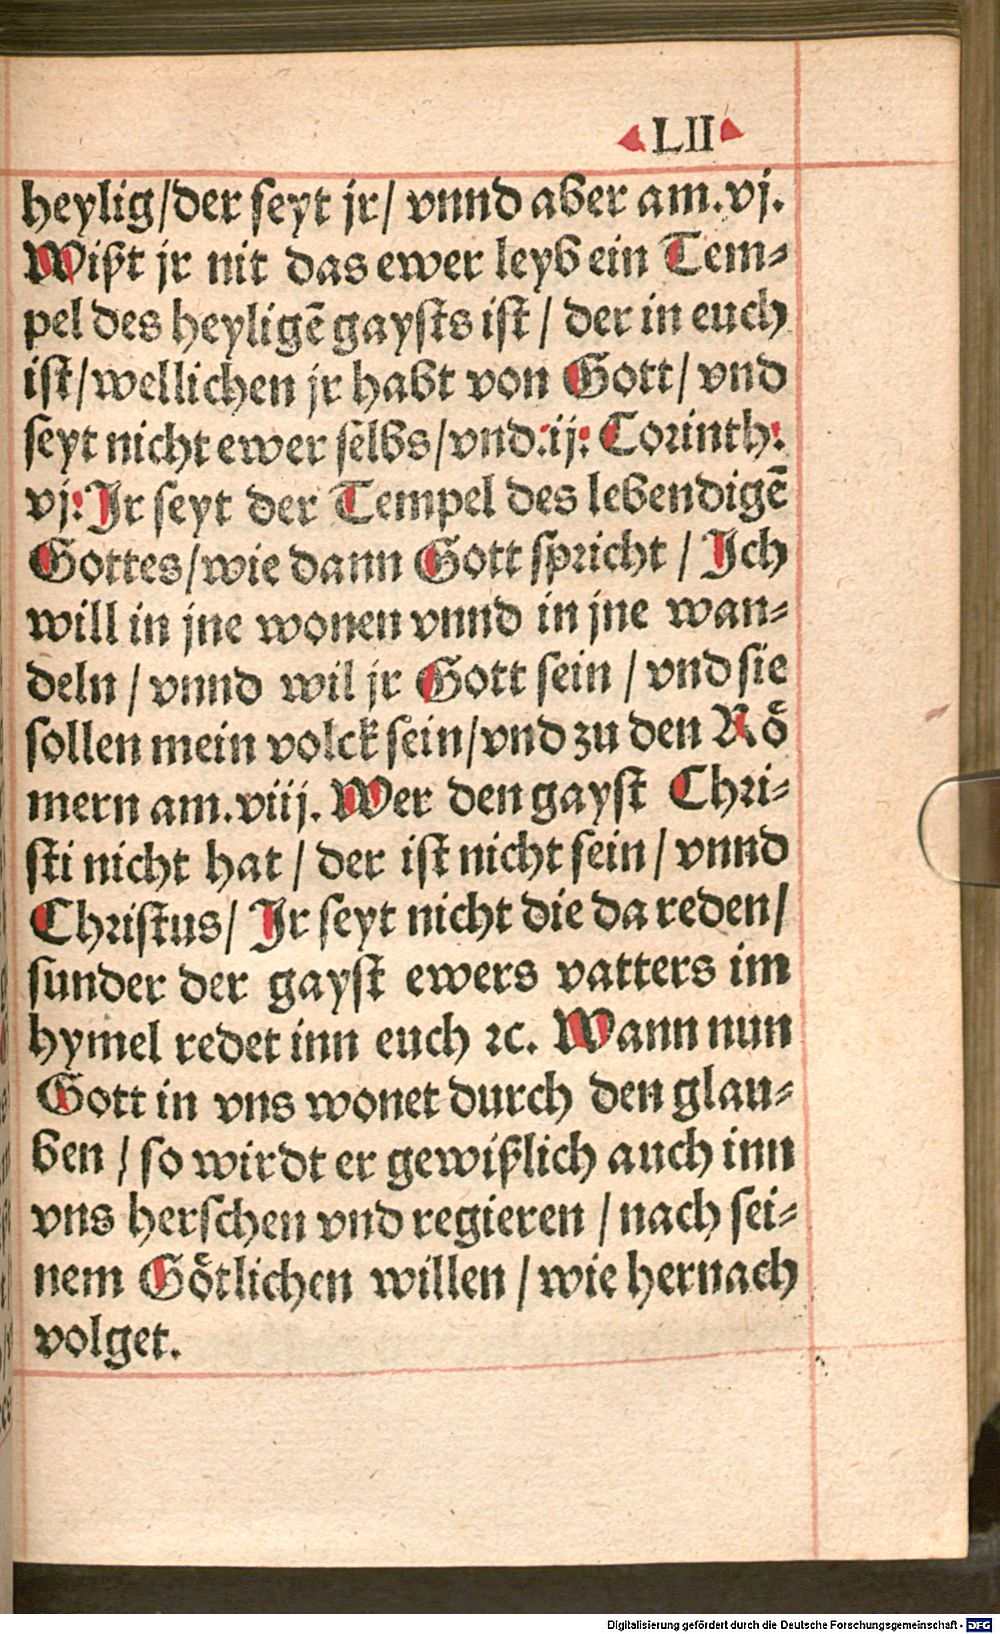 LII
heylig/der seyt jr/ vnnd aber am.vj.
Wißt jr nit das ewer leyb ein Tem⸗
pel des heyligē gaysts ist / der in euch
ist/wellichen jr habt von Gott/ vnd
seyt nicht ewer selbs/vnd.ij: Corinth:
vj: Jr seyt der Tempel des lebendigē
Gottes/wie dann Gott spricht / Jch
will in jne wonen vnnd in jne wan⸗
deln / vnnd wil jr Gott sein / vnd sie
sollen mein volck sein/vnd zu den Rö
mern am.viij. Wer den gayst Chri⸗
sti nicht hat / der ist nicht sein / vnnd
Christus/ Jr seyt nicht die da reden/
sunder der gayst ewers vatters im
hymel redet inn euch ꝛc. Wann nun
Gott in vns wonet durch den glau⸗
ben / so wirdt er gewißlich auch inn
vns herschen vnd regieren / nach sei⸗
nem Götlichen willen / wie hernach
volget.
Digitalisierung gefördert durch die Deutsche Forschungsgemeinschaft - DFG